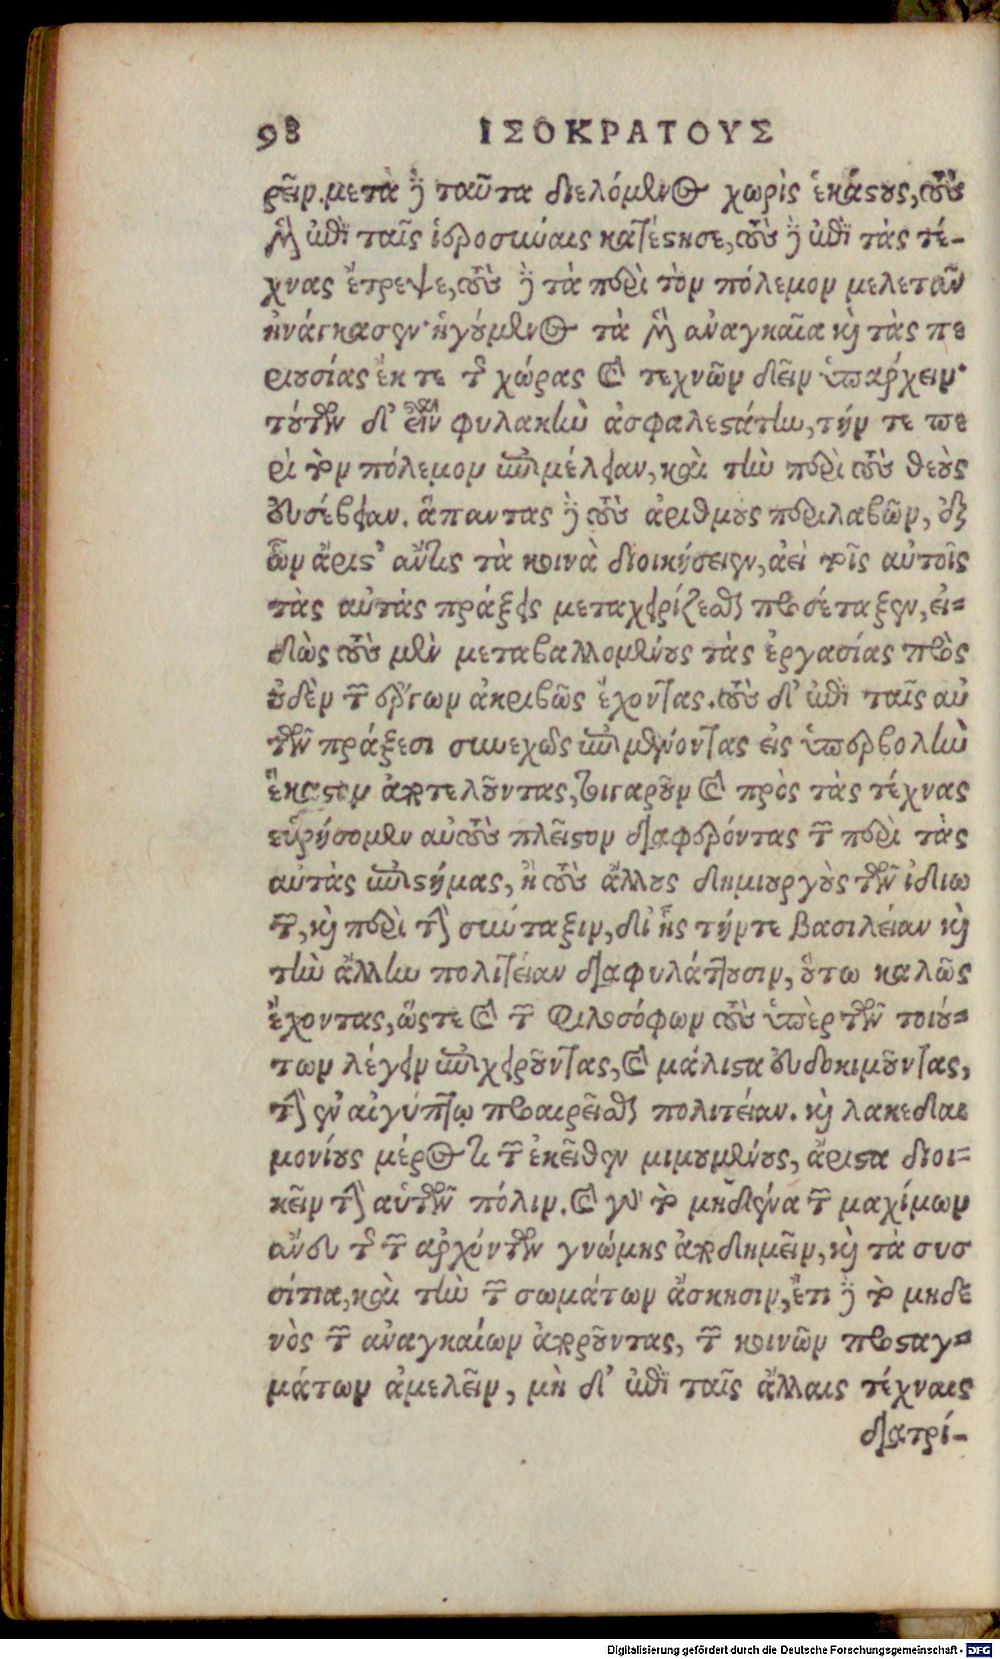 98 ΙΣΟΚΡΑΤΟΥΣ
ρεῖν. μετὰ δὲ ταῦτα διελόμενος χωρὶς ἑκάστους, τοὺς
μὲν ἐπὶ ταῖς ἱεροσύναις κατέστησε, τοὺς δὲ ἐπὶ τὰς τέ-
χνας ἔτρεψε, τοὺς δὲ τὰ περὶ τὸν πόλεμον μελετᾶν
ἠνάγκασεν· ἡγούμενος τὰ μὲν ἀναγκαῖα καὶ τὰς πε
ριουσίας ἔκ τε τῆς χώρας καὶ τεχνῶν δεῖν ὑπάρχειν·
τούτων δ' εἶναι φυλακὴν ἀσφαλεστάτην, τήν τε πε
ρὶ τὸν πόλεμον ἐπιμέλειαν, καὶ τὴν περὶ τοὺς θεοὺς
εὐσέβειαν. ἅπαντας δὲ τοὺς ἀριθμοὺς περιλαβῶν, ἐξ
ὧν ἄριστ' ἄν τις τὰ κοινὰ διοικήσειεν, ἀεὶ τοῖς αὐτοῖς
τὰς αὐτὰς πράξεις μεταχειρίζεσθαι προσέταξεν, εἰ-
δὼς τοὺς μὲν μεταβαλλομένους τὰς ἐργασίας πρὸς
οὐδὲν τῶν ἔργων ἀκριβῶς ἔχοντας. τοὺς δ' ἐπὶ ταῖς αὐ
τῶν πράξεσι συνεχῶς ἐπιμένοντας εἰς ὑπερβολὴν
ἕκαστον ἀποτελοῦντας, τοιγαροῦν καὶ πρὸς τὰς τέχνας
εὑρήσομεν αὐτοὺς πλεῖστον διαφέροντας τῶν περὶ τὰς
αὐτὰς ἐπιστήμας, ἢ τοὺς ἄλλους δημιουργοὺς τῶν ἰδιω
τῶν, καὶ περὶ τὴν σύνταξιν, δι' ἧς τήν τε βασιλείαν καὶ
τὴν ἄλλην πολιτείαν διαφυλάττουσιν, οὕτω καλῶς
ἔχοντας, ὥστε καὶ τῶν φιλοσόφων τοὺς ὑπὲρ τῶν τοιού-
των λέγειν ἐπιχειροῦντας, καὶ μάλιστα εὐδοκιμοῦντας,
τὴν ἐν αἰγύπτῳ προαιρεῖσθαι πολιτείαν. καὶ λακεδαι
μονίους μέρος τι τῶν ἐκεῖθεν μιμουμένους, ἄριστα διοι-
κεῖν τὴν αὑτῶν πόλιν. καὶ γὰρ τὸ μηδένα τῶν μαχίμων
ἄνευ τῆς τῶν ἀρχόντων γνώμης ἀποδημεῖν, καὶ τὰ συσ
σίτια, καὶ τὴν τῶν σωμάτων ἄσκησιν, ἔτι δὲ τὸ μηδε
νὸς τῶν ἀναγκαίων ἀποροῦντας, τῶν κοινῶν προσταγ-
μάτων ἀμελεῖν, μὴ δ' ἐπὶ ταῖς ἄλλαις τέχναις
διατρί-
Digitalisierung gefördert durch die Deutsche Forschungsgemeinschaft - DFG